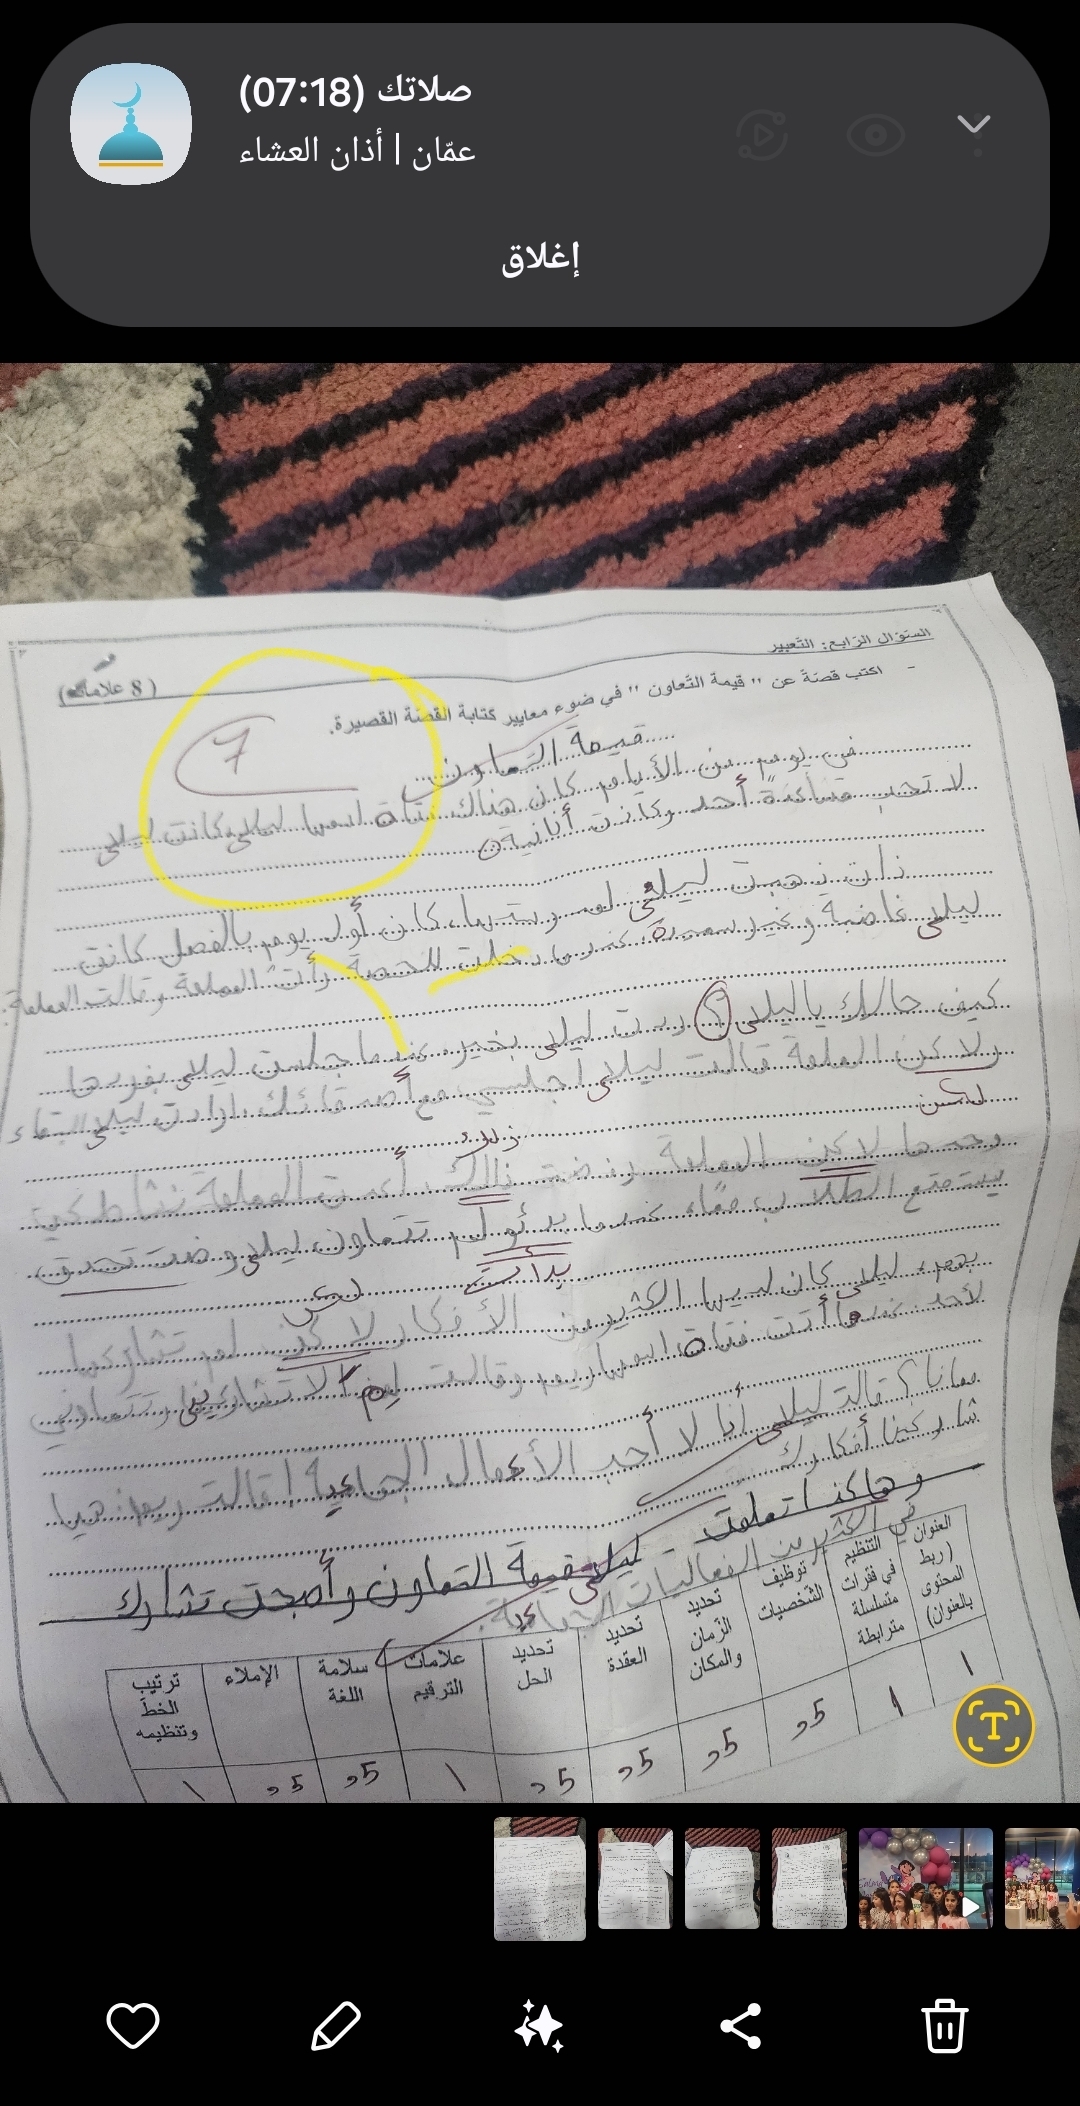 صلاتك (07:18)
عمّان | أذان العشاء
إغلاق
السّؤال الرّابع: التّعبير
- اكتب قصّة عن " قيمة التّعاون " في ضوء معايير كتابة القصّة القصيرة.
( 8 علامات)
7
قيمة التعاون
في يوم من الأيام كان هناك فتاة اسمها ليلى وكانت ليلى
لا تحب مساعدة أحد وكانت أنانية
ذهبت ليلى كان أول يوم بالفصل كانت
ليلى غاضبة وغير سعيدة عندما دخلت الحصة رأت المعلمة وقالت المعلمة:
كيف حالك يا ليلى؟ ردت ليلى بخير عندما جلست ليلى
ولاكن المعلمة قالت ليلى اجلسي مع أصدقائك ارادت ليلى البقاء
لكن
ذلك
وحدها لاكن المعلمة رفضت ذالك أعدت المعلمة نشاط كي
يستمتع الطلاب معًا، عندما بدئو لم تتعاون ليلى
بدأت
بهم، ليلى كان لديها الكثير من الأفكار لاكن لم تشاركها
لكن
لأحد عندما أتت فتاة اسمها ريم وقالت لم لا تشاركينا وتتعاوني
معانا؟ قالت ليلى أنا لا أحب الأعمال الجماعية! قالت ريم: هيا
شاركينا أفكارك
وهاكذا تعلمت ليلى قيمة التعاون وأصبحت تشارك
في الكثير من الفعاليات الجماعية.
العنوان (ربط المحتوى بالعنوان)
التنظيم في فقرات متسلسلة مترابطة
توظيف الشّخصيات
تحديد الزّمان والمكان
تحديد العقدة
تحديد الحل
علامات الترقيم
سلامة اللغة
الإملاء
ترتيب الخطّ وتنظيمه
١
١
,5
,5
,5
,5
١
,5
,5
١